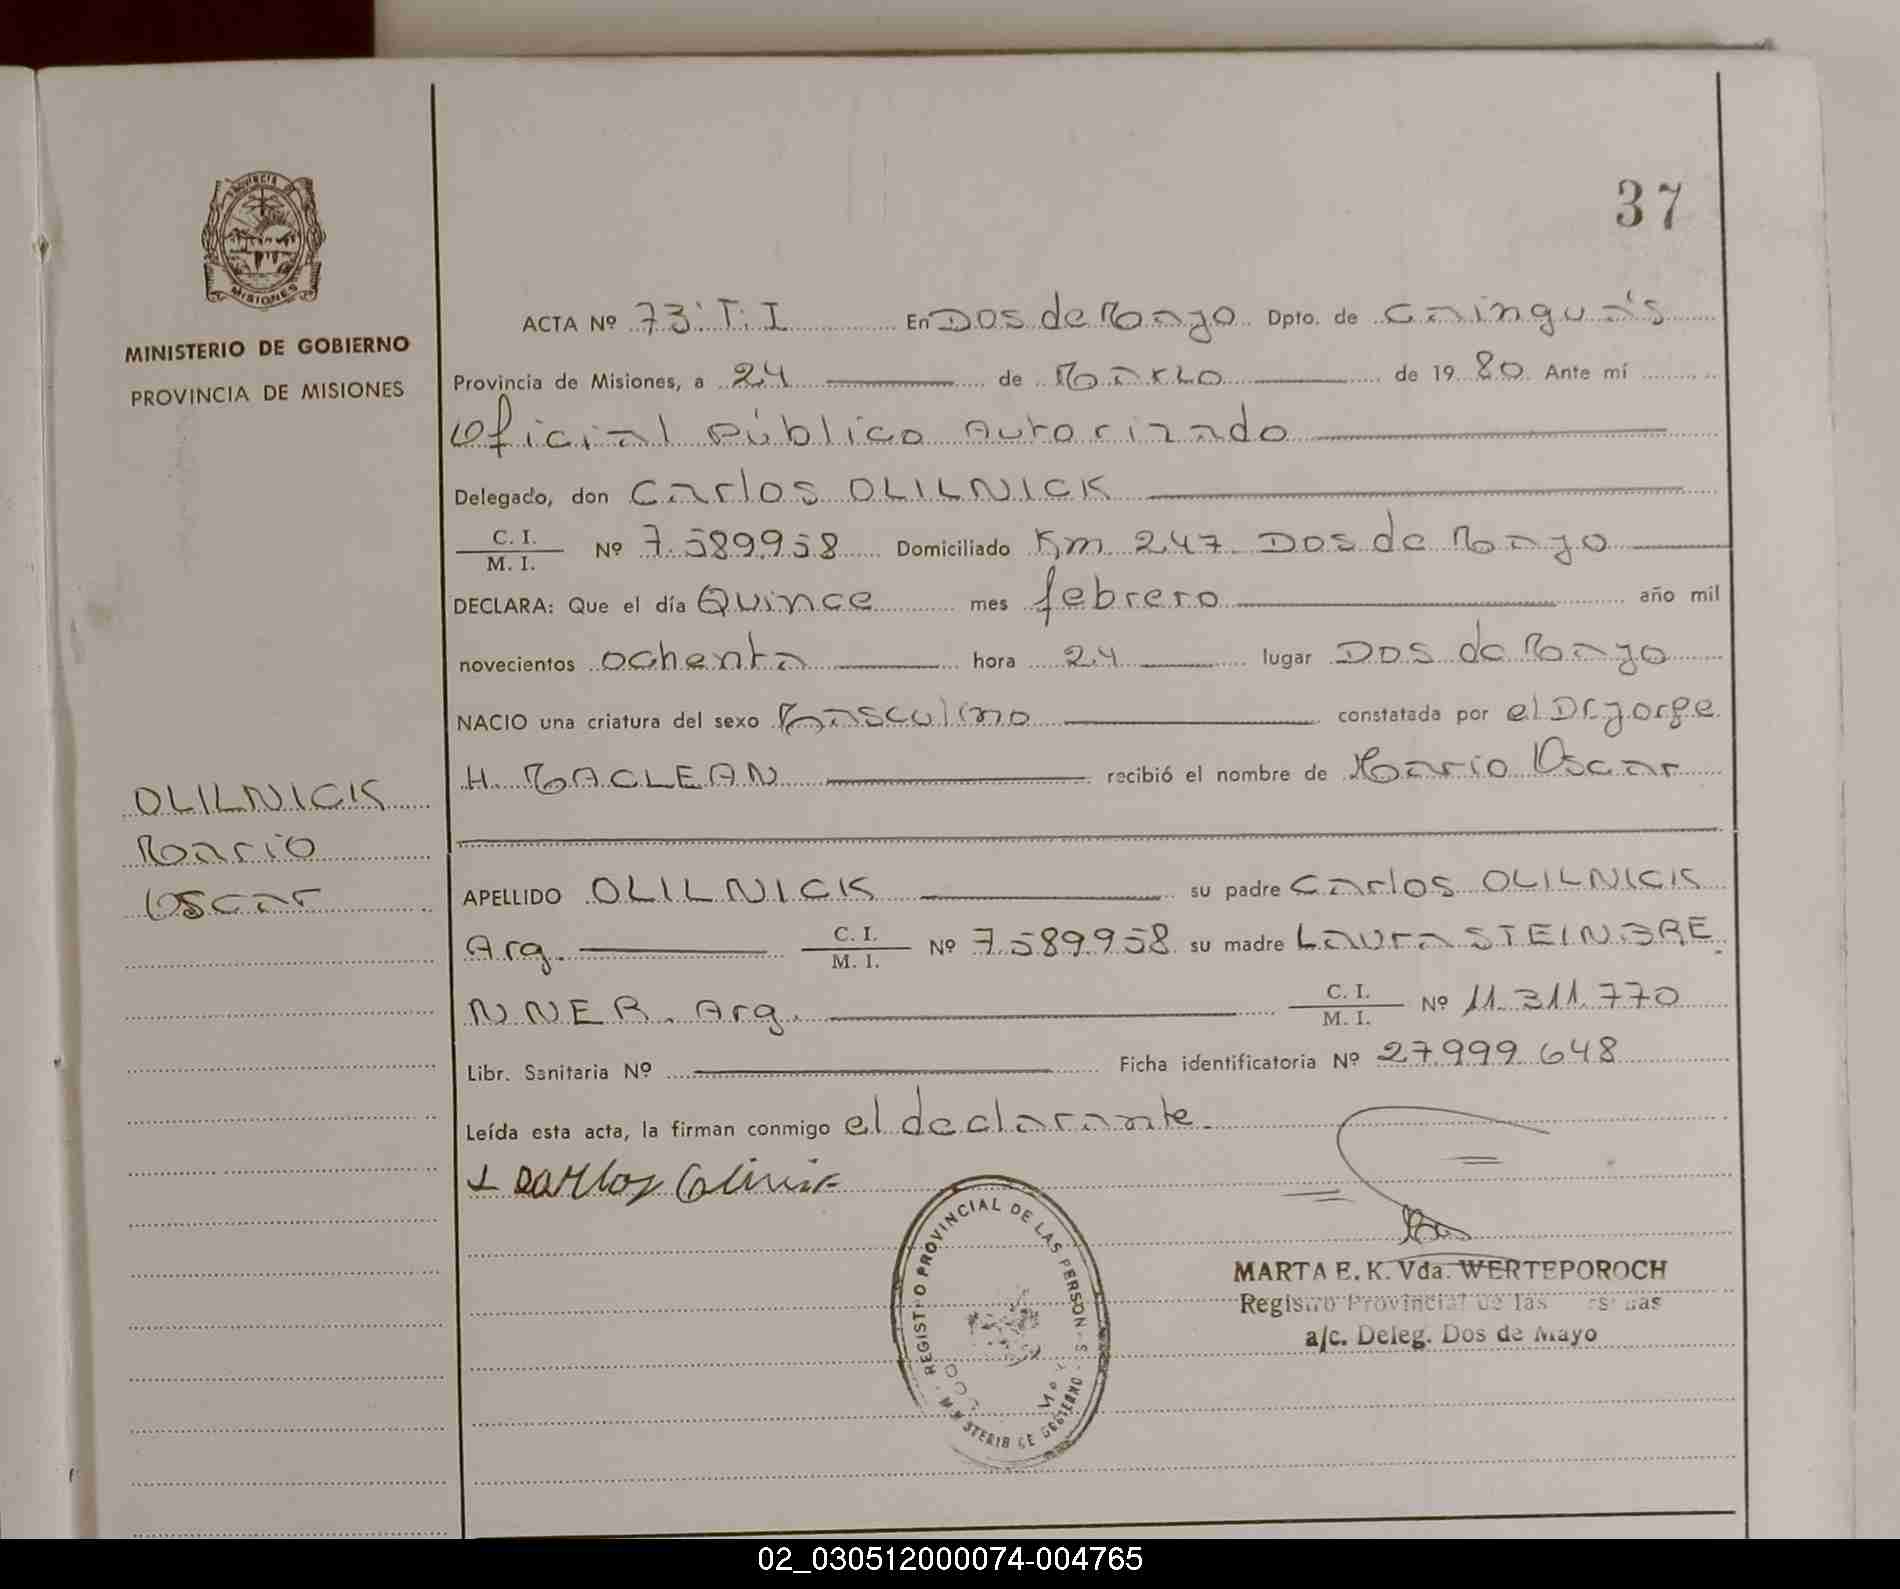 37
PROVINCIA DE
MISIONES
MINISTERIO DE GOBIERNO
PROVINCIA DE MISIONES
OLILNICK
Mario
Oscar
ACTA Nº 73 T. I En Dos de Mayo Dpto. de Cainguás
Provincia de Misiones, a 24 de Marzo de 1980 Ante mí
Oficial Público Autorizado
Delegado, don Carlos OLILNICK
C. I.
M. I. Nº 7.589.958 Domiciliado Km 247 Dos de Mayo
DECLARA: Que el día Quince mes febrero año mil
novecientos ochenta hora 24 lugar Dos de Mayo
NACIO una criatura del sexo Masculino constatada por el Dr. Jorge
H. MACLEAN recibió el nombre de Mario Oscar
APELLIDO OLILNICK su padre Carlos OLILNICK
Arg. C. I.
M. I. Nº 7.589.958 su madre Laura STEINBRE
NNER. Arg. C. I.
M. I. Nº 11.311.770
Libr. Sanitaria Nº Ficha identificatoria Nº 27999648
Leída esta acta, la firman conmigo el declarante.
REGISTRO PROVINCIAL DE LAS PERSONAS
MINISTERIO DE GOBIERNO
MARTA E. K. Vda. WERTEPOROCH
Registro Provincial de las Personas
a/c. Deleg. Dos de Mayo
02_030512000074-004765